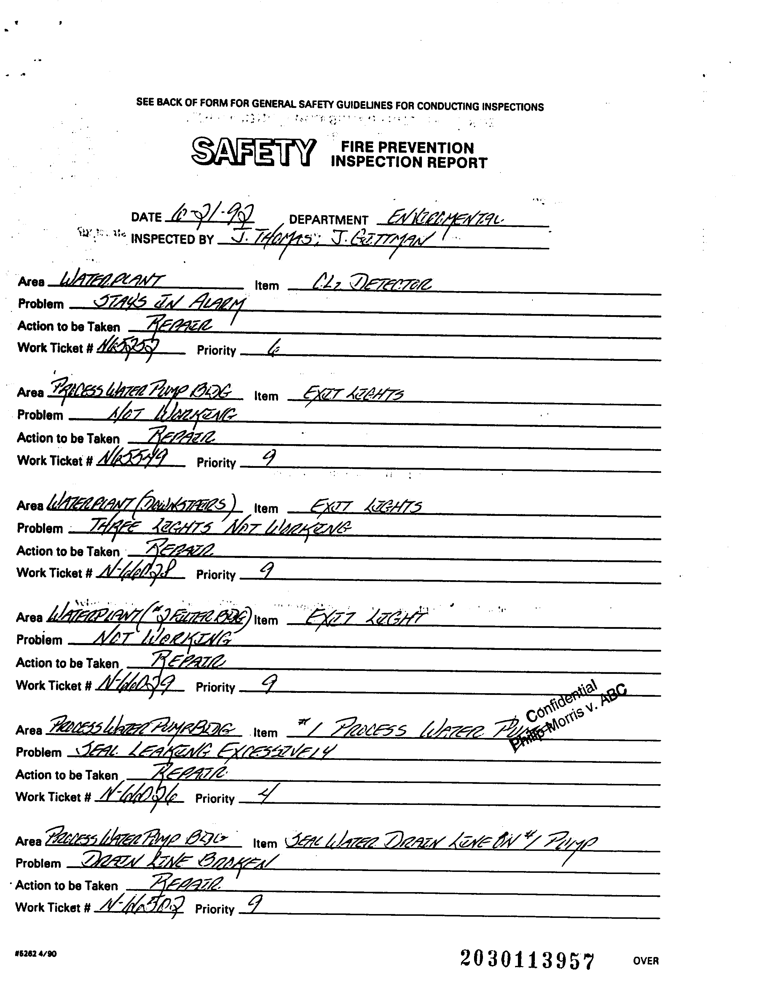 SEE BACK OF FORM FOR GENERAL SAFETY GUIDELINES FOR CONDUCTING INSPECTIONS
SAFETY FIRE PREVENTION INSPECTION REPORT
DATE 6-21-92 DEPARTMENT ENVIROMENTAL
INSPECTED BY J. THOMAS; J. GITTMAN
Area WATERPLANT Item CL2 DETECTOR
Problem STAYS IN ALARM
Action to be Taken REPAIR
Work Ticket # Priority 6
Area PROCESS WATER PUMP BLDG Item EXIT LIGHTS
Problem NOT WORKING
Action to be Taken REPAIR
Work Ticket # Priority 9
Area WATERPLANT (DOWNSTAIRS) Item EXIT LIGHTS
Problem THREE LIGHTS NOT WORKING
Action to be Taken REPAIR
Work Ticket # N-66028 Priority 9
Area WATERPLANT (#2 FILTER BLDG) Item EXIT LIGHT
Problem NOT WORKING
Action to be Taken REPAIR
Work Ticket # N-66029 Priority 9
Confidential
Philip Morris v. ABC
Area PROCESS WATER PUMP BLDG Item #1 PROCESS WATER
Problem SEAL LEAKING EXCESSIVELY
Action to be Taken REPAIR
Work Ticket # N-66026 Priority 4
Area PROCESS WATER PUMP BLDG Item SEAL WATER DRAIN LINE ON #1 PUMP
Problem DRAIN LINE BROKEN
Action to be Taken REPAIR
Work Ticket # Priority 9
#5262 4/90
2030113957 OVER